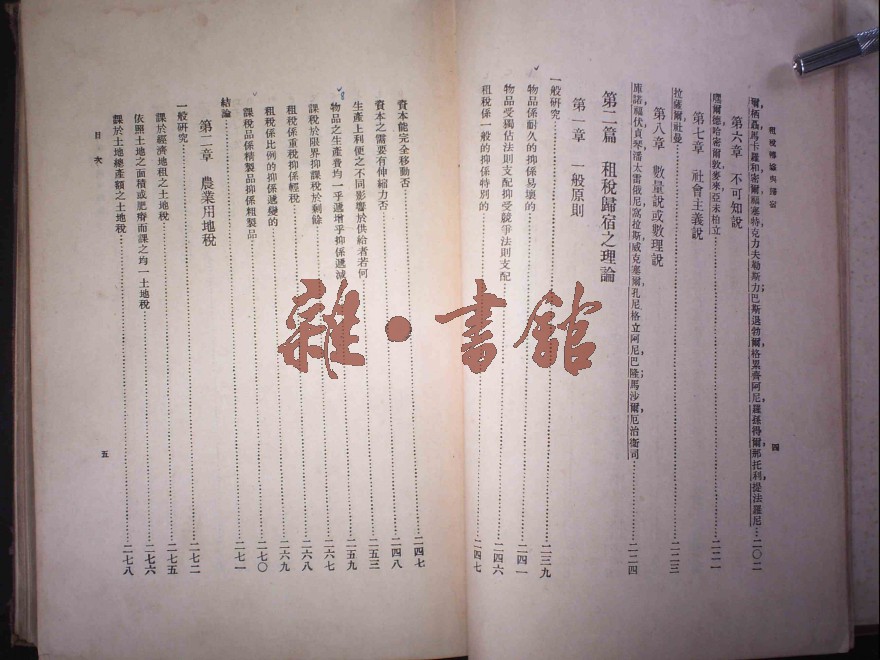 租稅轉嫁與歸宿
四
第六章 不可知說
嘿爾德哈密爾敦麥來,亞未柏立……二二一
第七章 社會主義說
拉薩爾,社曼……二二三
第八章 數量說或數理說
庫諾,福伏貞琴潘太雷俄尼窩拉斯威克塞爾,孔尼格立阿尼巴隆;馬沙爾,厄治衞司……二二四
第二篇 租稅歸宿之理論
第一章 一般原則
一般研究……二三九
物品係耐久的抑係易壞的……二四一
物品受獨佔法則支配抑受競爭法則支配……二四六
租稅係一般的抑係特別的……二四七
資本能完全移動否……二四七
資本之需要有伸縮力否……二四八
生產上利便之不同影響於供給者若何……二五三
物品之生產費均一乎遞增乎抑係遞減……二五九
課稅於限界抑課稅於剩餘……二六七
租稅係重稅抑係輕稅……二六八
租稅係比例的抑係遞變的……二六九
課稅品係精製品抑係粗製品……二七〇
結論……二七一
第二章 農業用地稅
一般研究……二七二
課於經濟地租之土地稅……二七五
依照土地之面積或肥瘠而課之均一土地稅……二七六
課於土地總產額之土地稅……二七八
目次
五
雜·書館